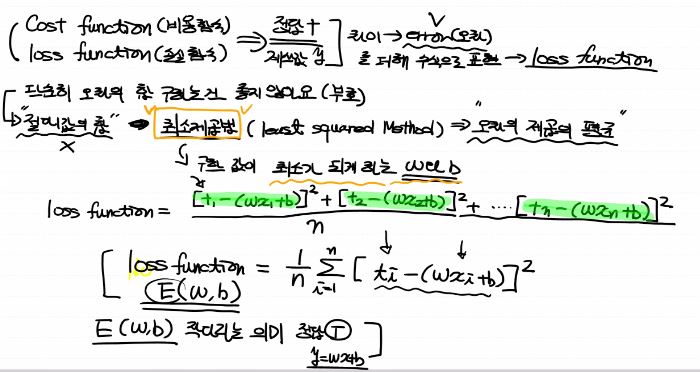 Cost function (비용함수)
loss function (손실함수) ⇒ 정답 t
계산값 y ] 차이 → error(오차)
를 더해 수식으로 표현 → loss function
단순히 오차의 합 구하는건 좋지 않아요 (부호)
"절대값의 합" → 최소제곱법 (least squared Method) ⇒ "오차의 제곱의 평균"
X
↳ 구한 값이 최소가 되게 하는 w와 b
loss function = [t₁-(wx₁+b)]² + [t₂-(wx₂+b)]² + .... [tₙ-(wxₙ+b)]²
n
loss function = 1/n Σ i=1 n [ tᵢ-(wxᵢ+b)]²
E(w,b)
E(w,b) 작다라는 의미 정답 T
y=wx+b